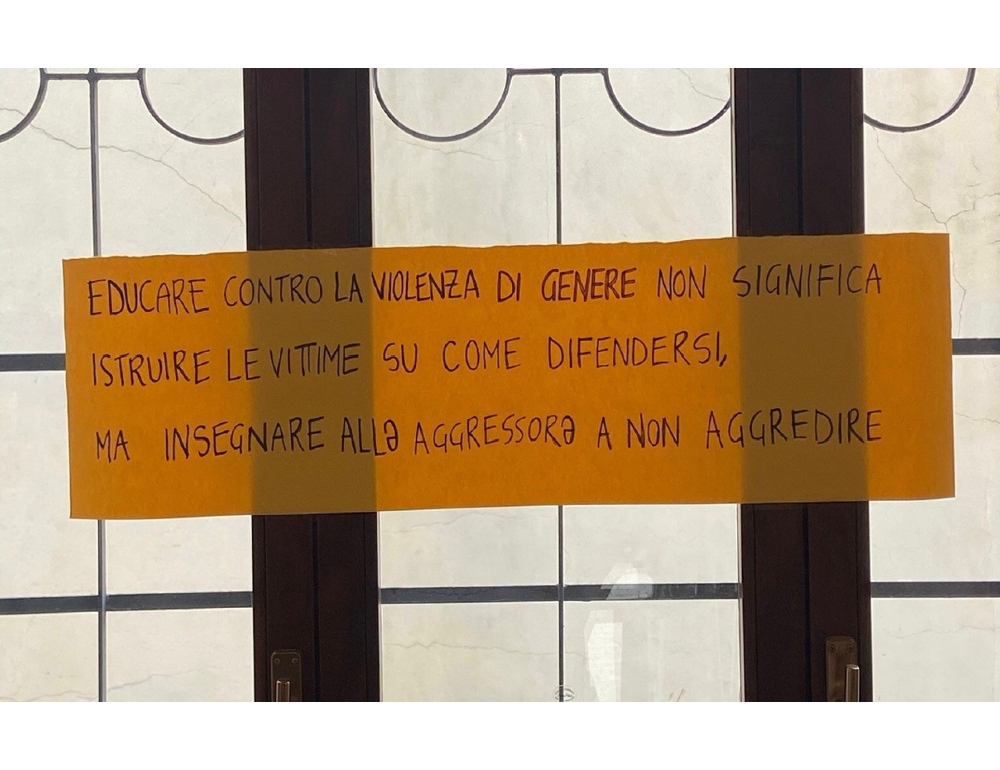 EDUCARE CONTRO LA VIOLENZA DI GENERE NON SIGNIFICA
ISTRUIRE LE VITTIME SU COME DIFENDERSI,
MA INSEGNARE ALLƏ AGGRESSORƏ A NON AGGREDIRE